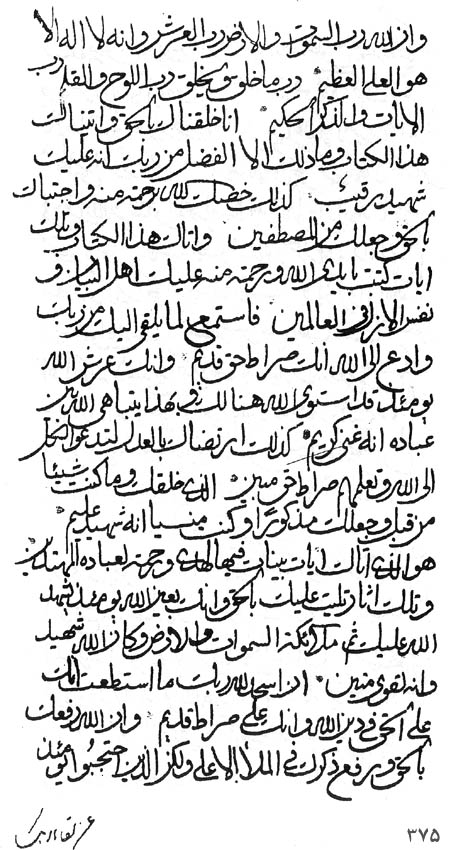 وان الله رب السموات والارض رب العرش وانه لا اله الا
هو العلى العظيم رب ما خلق ويخلق رب اللوح والقلم رب
الايات والذكر الحكيم انا خلقناك بالحق واتيناك
هذا الكتاب وما ذلك الا الفضل من ربك انه عليك
شهيد رقيب كذلك خصك الله برحمته منه واجتباك
بالحق وجعلك من المصطفين واتاك هذا الكتاب وتلك
ايات كتبت الله ورحمة منه عليك اهل البيان و
نفس الامر فى العالمين فاستمع لما يلقى اليك من ربك
وادع الى الله انك صراط حق قديم وانك عرش الله
يومئذ قد استوى الله هنالك وبهذا يتباهى الله بين
عباده انه غنى كريم كذلك ارتضاك بالعدل لتدعو الكل
الى الله وتعلمهم صراط حق مبين الذى خلقك وما كنت شيئا
من قبل وجعلك مذكورا وكنت منسيا انه شهيد عليم
هو الذى اتاك ايات بينات فيها الهدى ورحمة لعباده المهتدين
وتلك اثار تليت عليك بالحق وانك بعين الله يومئذ شهد
الله عليك ثم ملائكة السموات والارض وكان الله شهيد
وانه لقوى متين ان اسجد لله ربك ما استطعت انك
على الحق فى دين الله وانك على صراط قديم وان الله رفعك
بالحق ويرفع ذكرك فى الملا الاعلى ولكن الذين احتجبوا يومئذ
٣٧٥